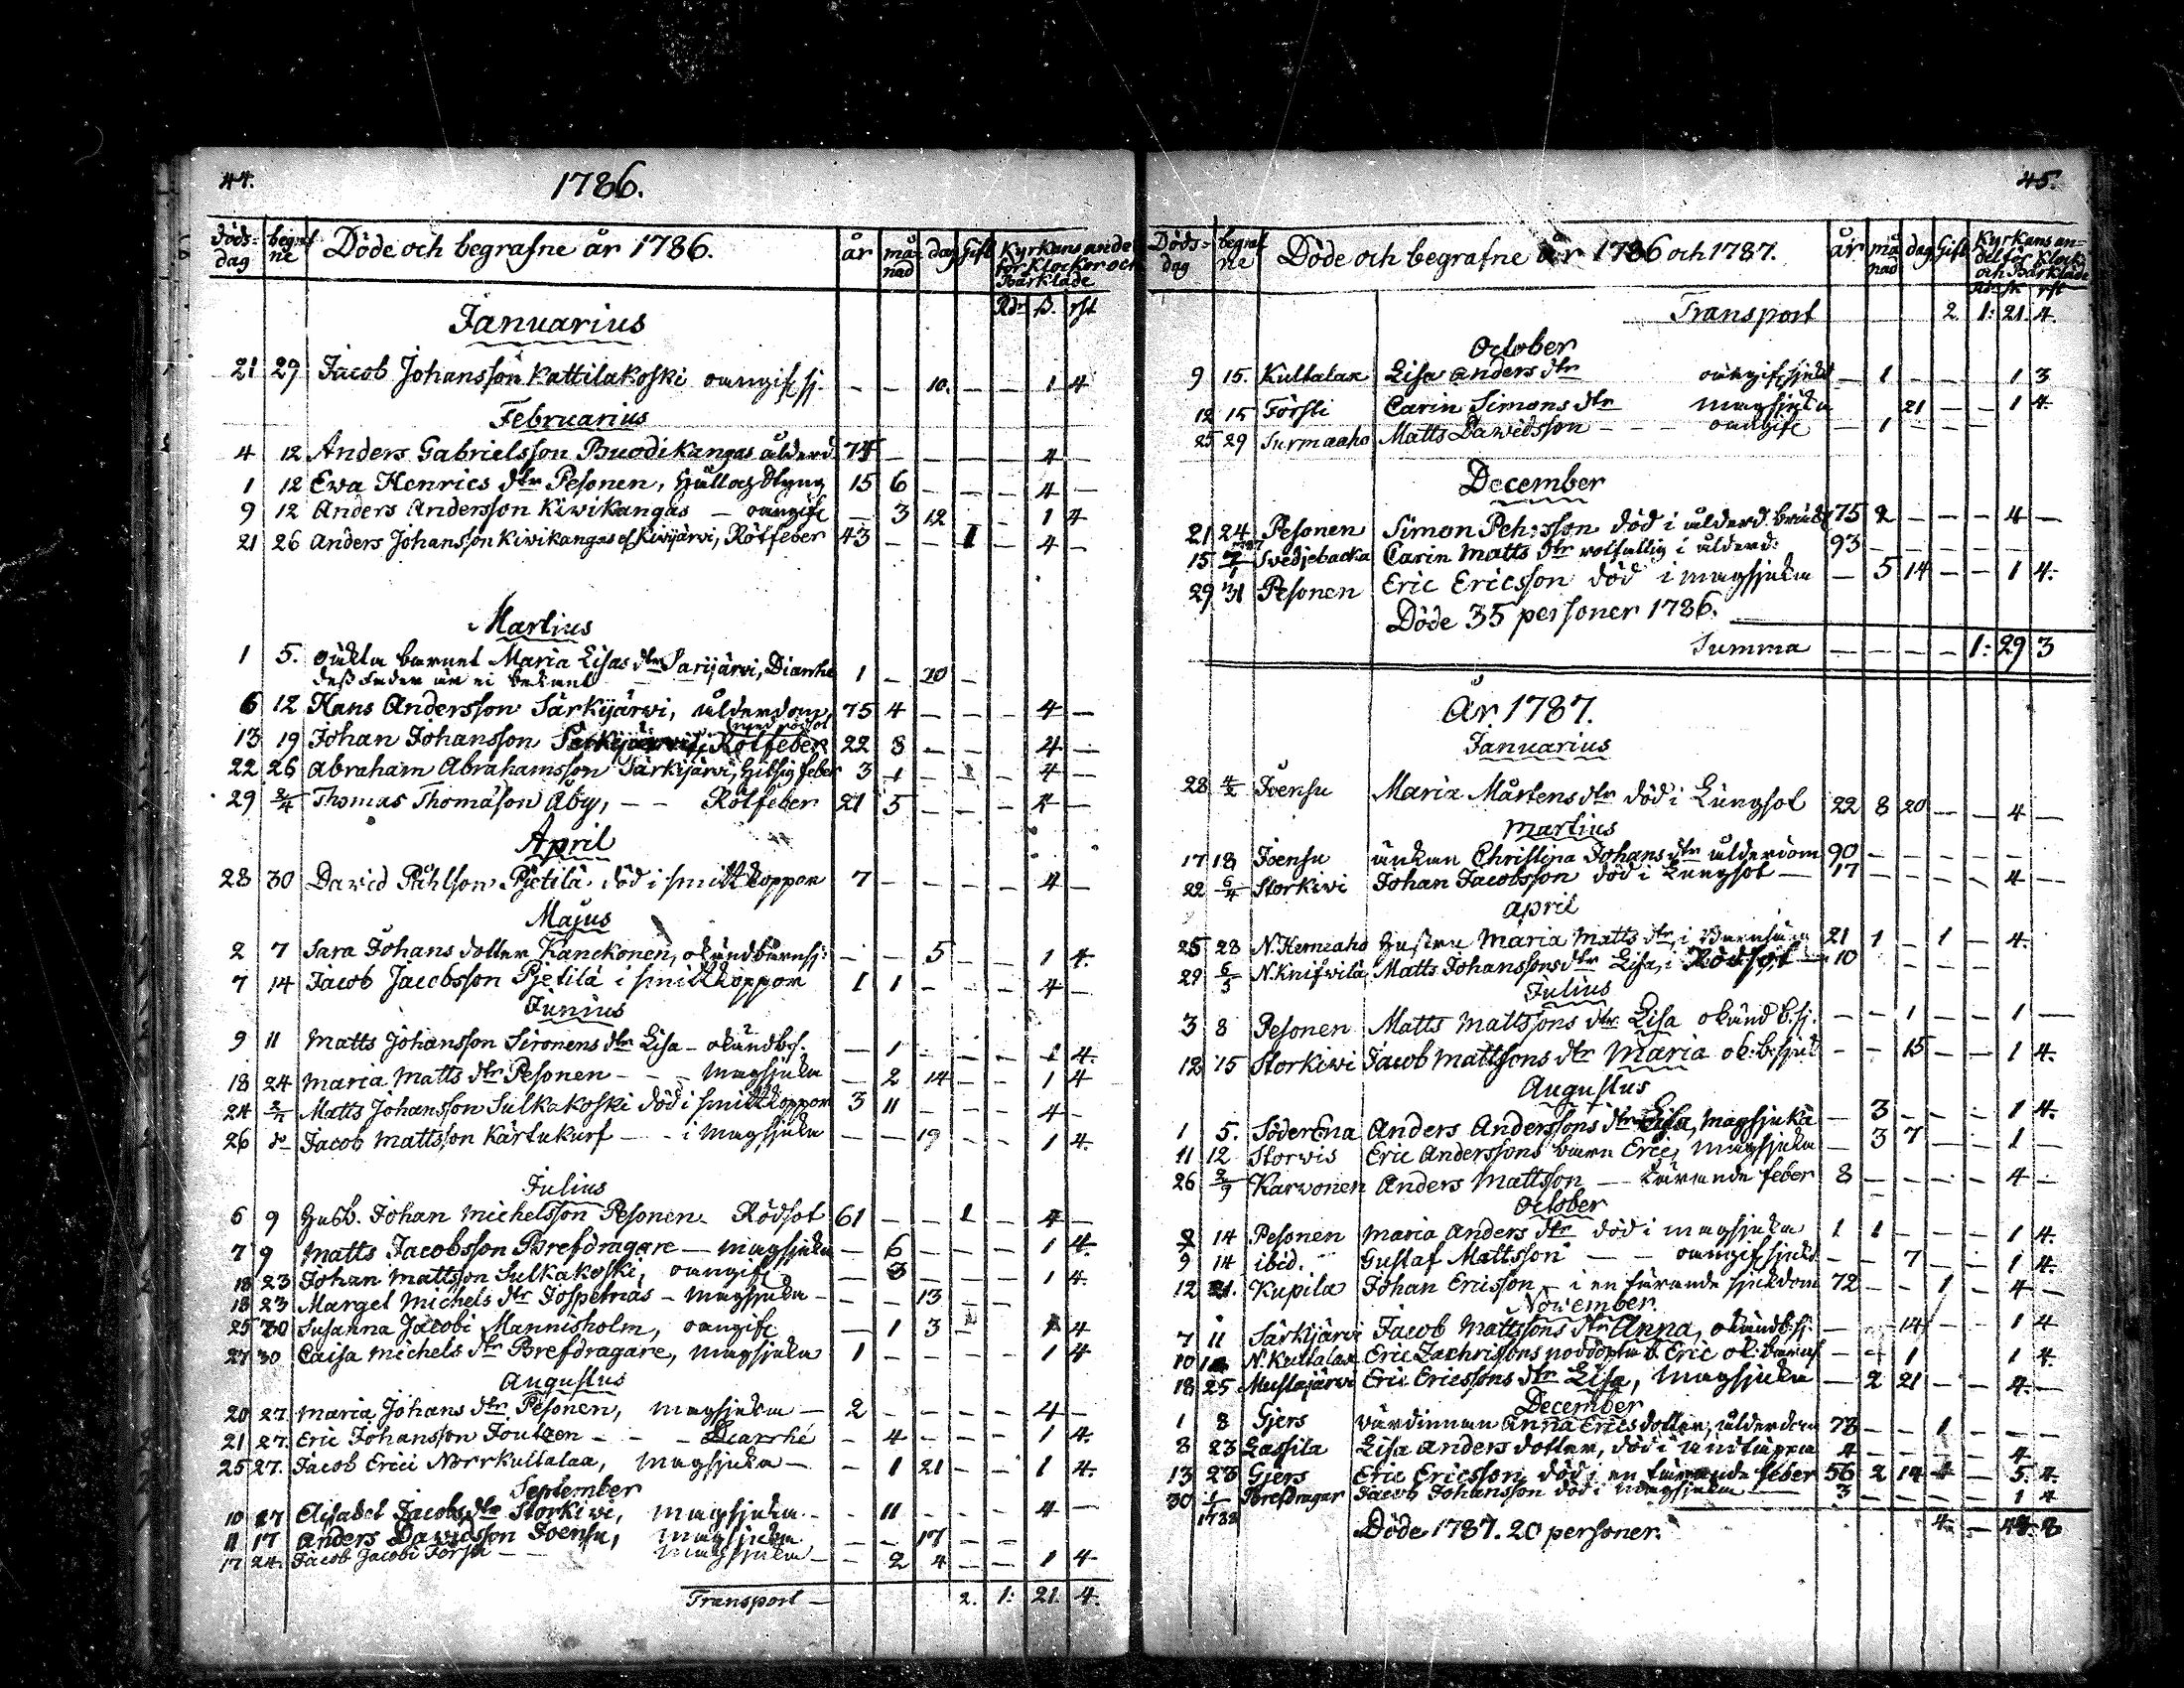 44.
1786.
Döds-dag begrafne Döde och begrafne år 1786. år månad dag Gift Kyrkans andel för Klockor och Bårkläde
Rdr ß. rst
Januarius
21 29 Jacob Johansson Kattilakoski oangif sj. - - 10. - - 1 4
Februarius
4 12 Anders Gabrielsson Buodikangas ålderd 74 - - - - 4 -
1 12 Ewa Henrics dtr Pesonen, Håll och Styng 15 6 - - - 4 -
9 12 Anders Andersson Kiwikangas - oangife - 3 12 - - 1 4
21 26 Anders Johansson Kiwikangas el Kiwijärvi, Rötfeber 43 - - 1 - 4 -
Martius
1 5. oäkta barnet Maria Lisas dtr Sarijärvi, Diarrhe 1 - 20 -
dess Fader är ei bekant
6 12 Hans Andersson Särkijärwi, ålderdom 75 4 - - - 4 -
(med rödsot
13 19 Johan Johansson Särkijärwi, Rötfeber 22 8 - - - 4 -
22 26 Abraham Abrahamsson Särkijärwi, hitsig feber 3 1 - - - 4 -
29 2/4 Thomas Thomasson Åby, - - Rötfeber 21 5 - - - 4 -
April
28 30 David Påhlson Pjetilä död i smittkoppor 7 - - - - 4 -
Majus
2 7 Sara Johans dotter Kanckonen, okänd barnsj: - - 5 - - 1 4.
7 14 Jacob Jacobsson Pjetilä i smittkoppor 1 1 - - - 4 -
Junius
9 11 Matts Johansson Sironens dtr Lisa - okänd b.s. - 1 - - - 1 4.
18 24 Maria Matts dtr Pesonen - - - magsjuka - 2 14 - - 1 4
24 2/7 Matts Johansson Sulkakoski död i smittkoppor 3 11 - - - 4 -
26 do Jacob Mattsson Kärtukurf - - i magsjuka - - 19 - - 1 4.
Julius
6 9 Husb. Johan Michelsson Pesonen - Rödsot 61 - - 1 - 4 -
7 9 Matts Jacobsson Brefdragare - magsjuka - 6 - - - 1 4.
18 23 Johan Mattsson Sulkakoski, oangife - 3 - - - 1 4.
18 23 Marget Michels dtr Jospetnäs - magsjuka - - - 13 - -
25 30 Susanna Jacobi Mannisholm, oangife - 1 3 - - 1 4
27 30 Caisa Michels dtr Brefdragare, magsjuka 1 - - - - 1 4
Augustus
20 27. Maria Johans dtr Pesonen, magsjuka - 2 - - - - 4 -
21 27. Eric Johansson Joutzen - - - Diarrhé - 4 - - - 1 4.
25 27. Jacob Erici Norrkultalax, magsjuka - - 1 21 - - 1 4.
September
10 17 Elisabet Jacobs dtr Storkiwi, magsjuka - - 11 - - - 4 -
11 17 Anders Dawidsson Joensu, magsjuka - - 17 - -
17 24. Jacob Jacobi Försti - - magsjuka - - 2 4 - - 1 4
Transport - 2. 1: 21. 4.
45.
Döds-dag begrafne Döde och begrafne år 1786 och 1787. år månad dag Gift Kyrkans andel för Klock- och Bårkläde
Rdr sk rst
Transport 2. 1: 21. 4.
October
9 15. Kultalax Lisa Anders dtr oangif sjukd - 1 - - - 1 3
12 15 Försti Carin Simons dtr magsjuka 21 - - 1 4.
25 29 Surmaaho Matts Dawidsson - - - oangife - 1 - - -
December
21 24 Pesonen Simon Pehrsson död i ålderd. bräckl 75 2 - - - 4 -
15 1787 7/1 Svedjebacka Carin Matts dtr rotfällig i ålderd: 93 - - - - - -
29 31 Pesonen Eric Ericsson död i magsjuka - 5 14 - - 1 4.
Döde 35 personer 1786.
Summa - - - - 1: 29 3
År 1787.
Januarius
28 4/2 Joensu Maria Mårtens dtr död i Lungsot 22 8 20 - - 4 -
Martius
17 18 Joensu änkan Christina Johans dtr ålderdom 90 - - - - - -
22 6/4 Storkiwi Johan Jacobsson död i Lungsot - 17 - - - - 4 -
April
25 28 N. Hemeaho Hustru Maria Matts dtr, i Barnsäng 21 1 - 1 - 4.
29 6/5 N. Knifwilä Matts Johanssons dtr Lisa, i Rödsot - 10 - - - -
Julius
3 8 Pesonen Matts Mattssons dtr Lisa okänd b.sj. - - 1 - - 1 -
12 15 Storkiwi Jacob Mattssons dtr Maria ok: b: sjuk - - 15 - - 1 4.
Augustus
1 5. Söderena Anders Anderssons dtr Lisa, magsjuka - 3 - - - 1 4.
11 12 Storwis Eric Anderssons barn Eric, magsjuka - 3 7 - - 1 -
26 2/9 Karvonen Anders Mattsson - - tärande feber 8 - - - - 4 -
October
9 14 Pesonen Maria Anders dtr död i magsjuka 1 1 - - - 1 4.
9 14 ibid. Gustaf Mattsson - - oangif sjukd - - 7 - - 1 4.
12 21. Kupila Johan Ericsson - i en tärande sjukdom 72 - - 1 - 4 -
November
7 11 Särkijärvi Jacob Mattssons dtr Anna, okänd b:sj. - - 14 - - 1 4
10 N. Kultalax Eric Zachrissons nöddöpta b. Eric ok: barnsj - - 1 1 4.
18 25 Mustajärvi Eric Ericssons dtr Lisa, magsjuka - 2 21 - - 4. -
December
1 8 Gjers värdinnan Anna Erics dotter, ålderdom 73 - - 1 - - -
8 23 Lassila Lisa Anders dotter, död i 4 - - - - 4
13 23 Gjers Eric Ericsson död i en tärande feber 56 2 14 1 - 5. 4.
30 1/1 1788 Brefdragar Jacob Johansson död i magsjuka - 3 - - - - 1 4
Döde 1787. 20 personer. 4. - 48. 8